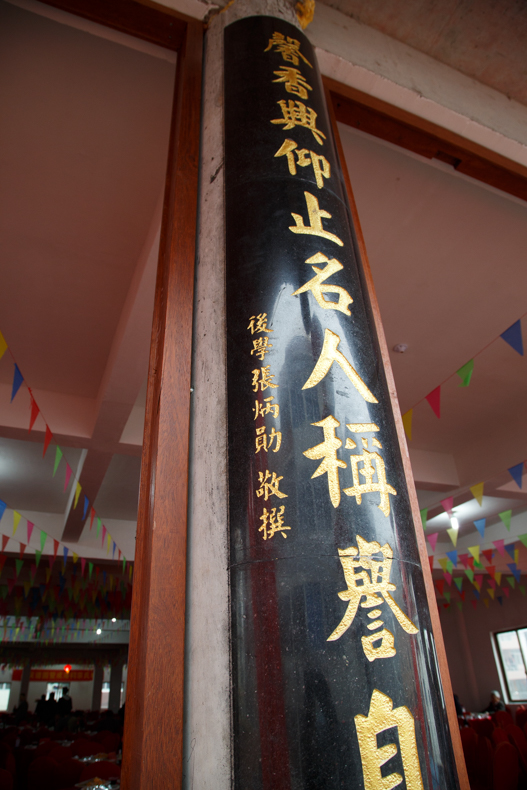 馨香興仰止名人稱譽自
後學張炳勛敬撰